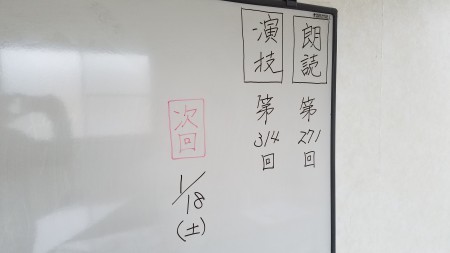 朗読
第
271
回
演技
第
314
回
次回
1/18
(土)